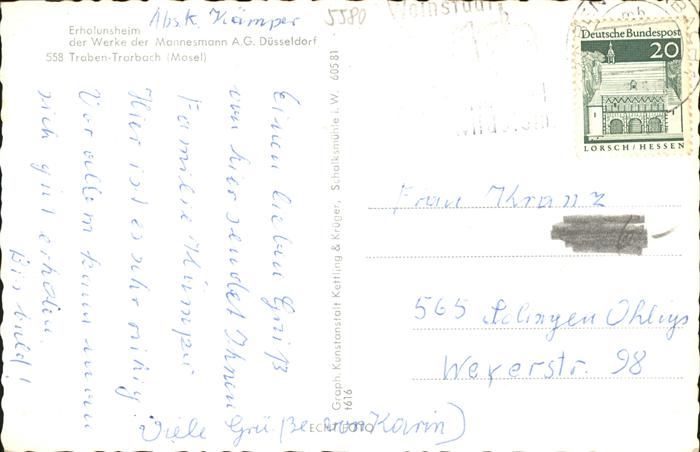 Absk. Kämper
Erholunsheim
der Werke der Mannesmann A.G. Düsseldorf
558 Traben-Trarbach (Mosel)
Einen lieben Gruß
von hier sendet Ihnen
Familie Kämper
Hier ist es sehr ruhig.
Vor allem kann man
sich gut erholen.
Bis bald!
Viele Grüße von Karin)
Graph. Kunstanstalt Kettling & Krüger, Schalksmühle i.W. 60581
t616
ECHT FOTO
5580
Weinstadt
Deutsche Bundespost
20
LORSCH/HESSEN
Frau Kranz
565 Solingen Ohligs
Weyerstr. 98